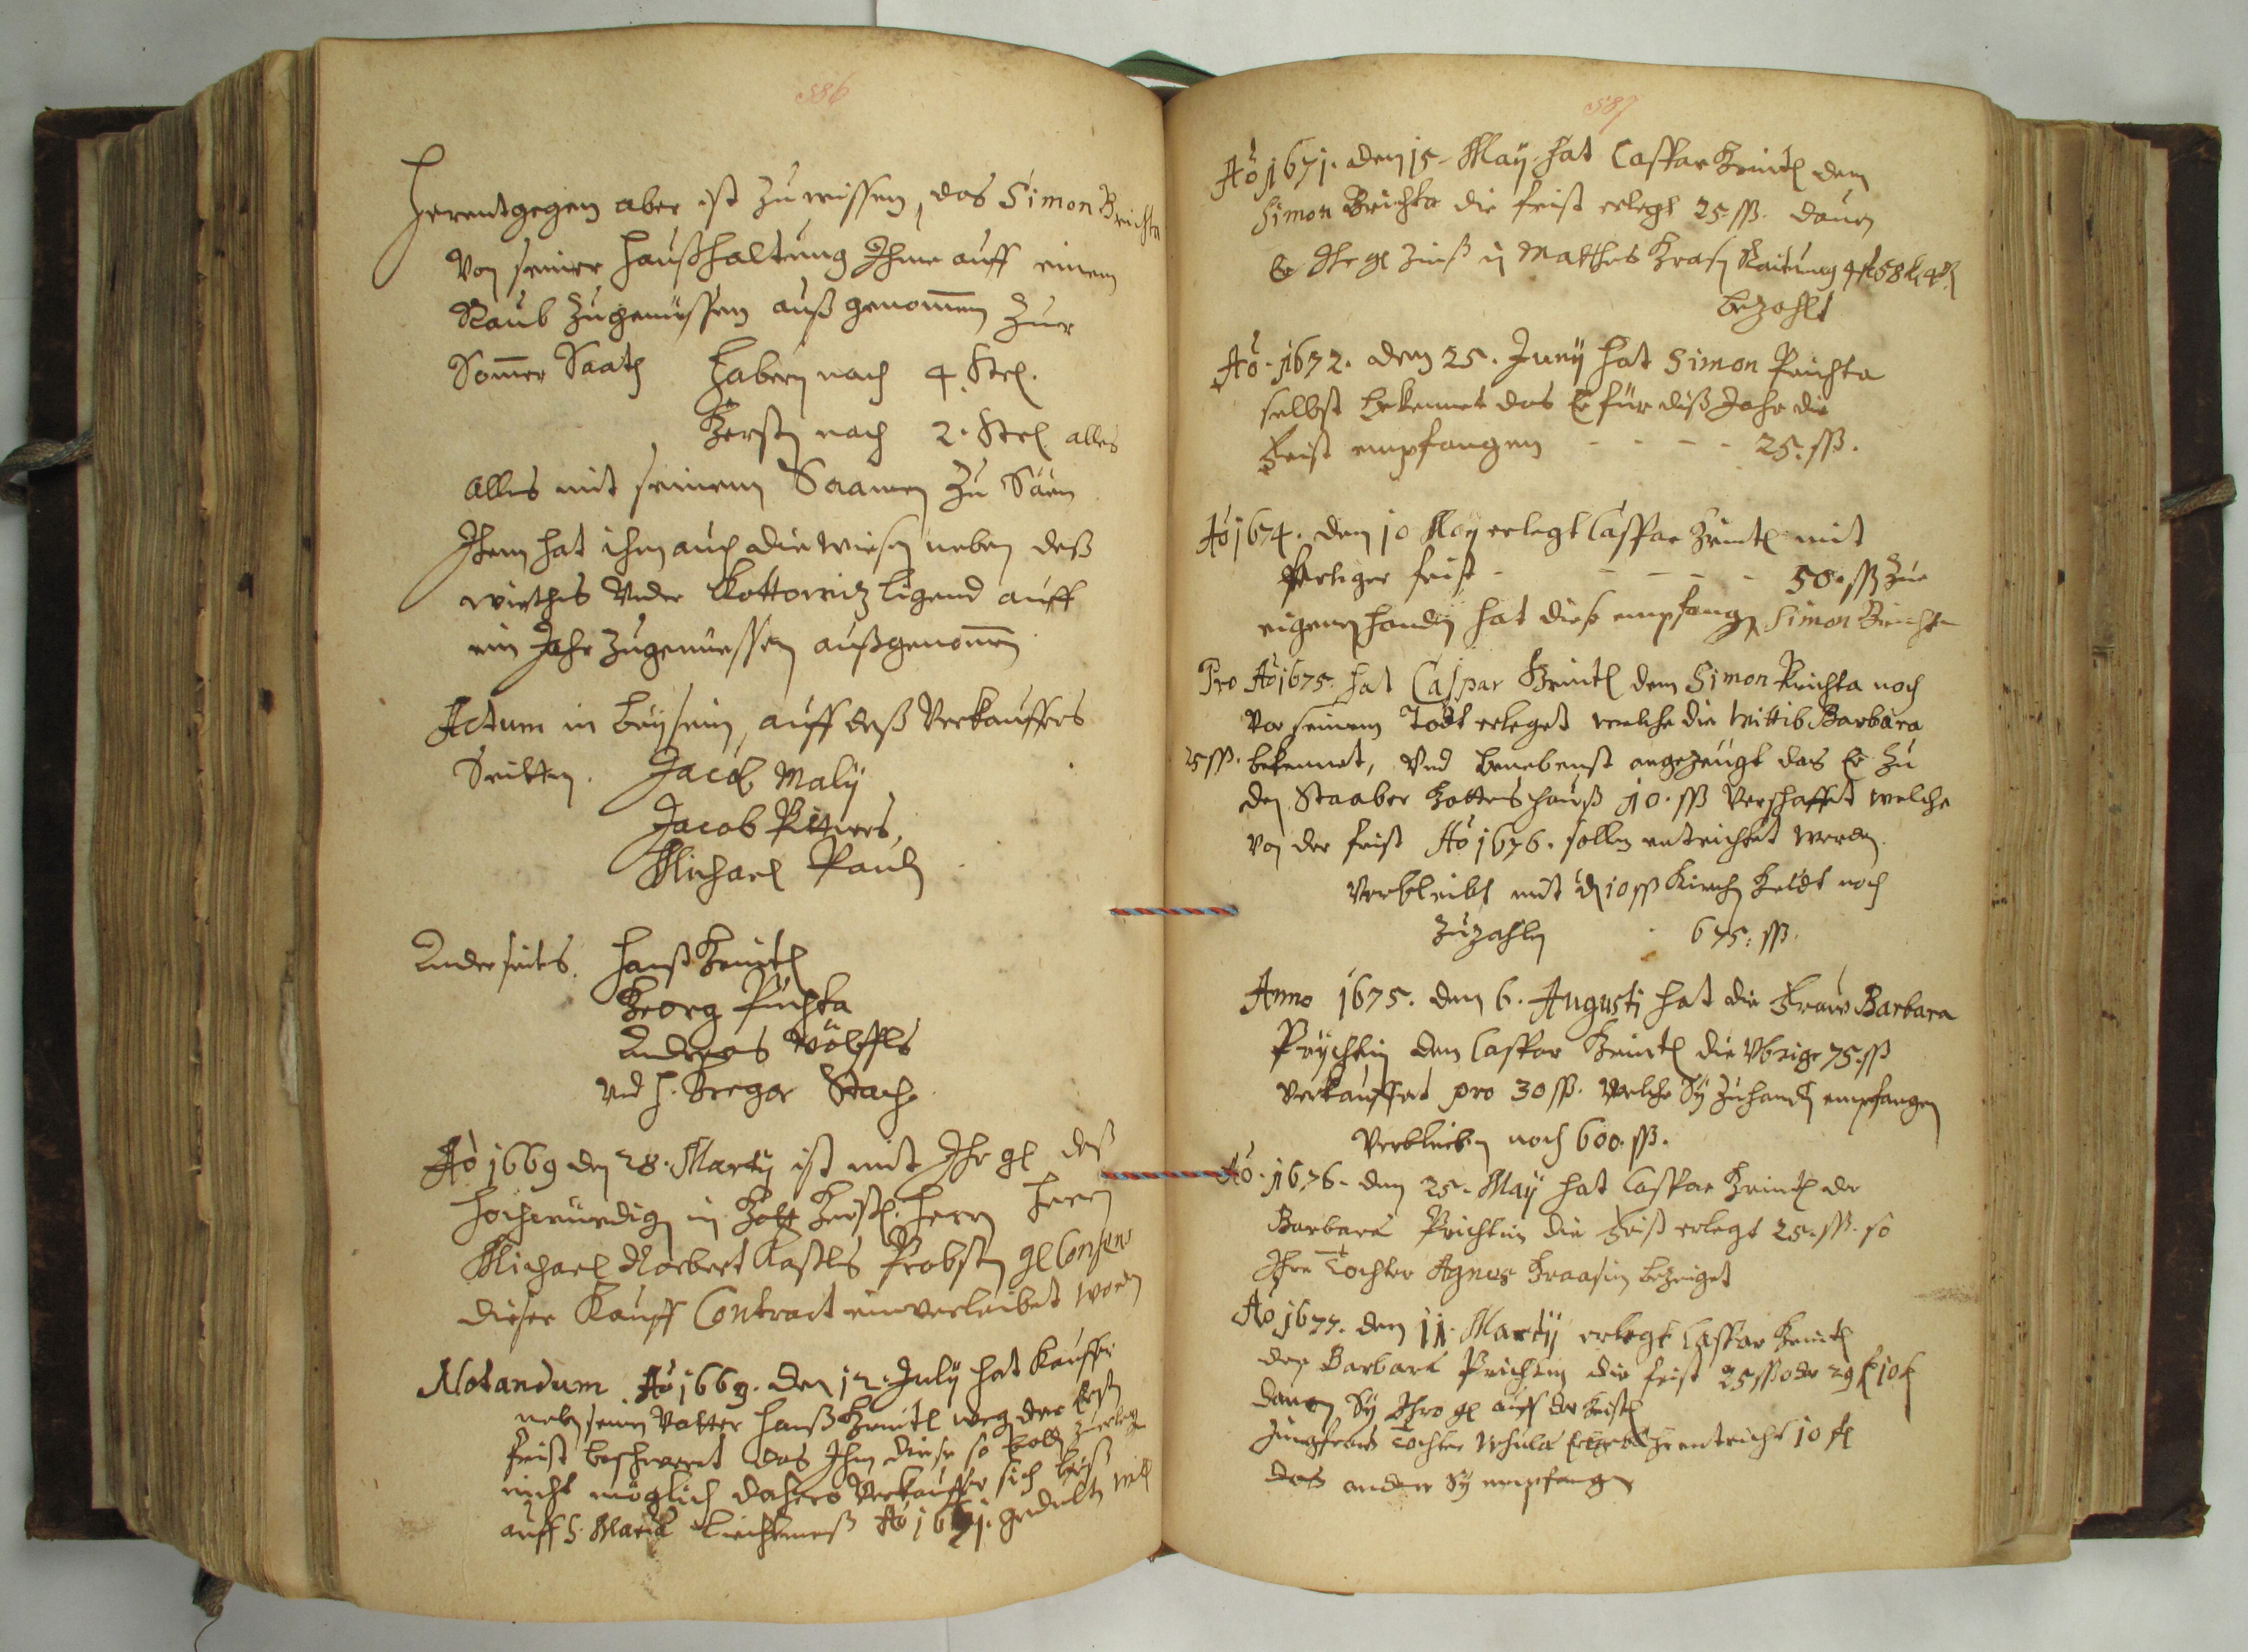 586
Herentgegen aber ist zu wissen, das Simon Brichta
Von seiner Haußhaltung Ihme auff einem
Raub zugenüssen auß genom̄en zur
Som̄er Saath Habern nach 4. Strl.
Gersten nach 2. Strl alles
alles mit seinem Saamen zu Säen
Item hat ihm auch die wiesen neben deß
wirthes Under Kottowitz ligend auff
ein Jahr zugenüessen außgenom̄en
Actum in beysein, auff deß Verkauffers
Seitten. Jacob Maly
Jacob
Michael Pauls
Anderseits. Hanß Greüttl
Georg Puchta
Andreas Wölffls
Und H. Gregor Stach
Aō 1669 den 28. Marty ist mit Ihr gl deß
Hochwürdigen in Gott Herrn Herrn
Michael Norbert Kastls Probsten gl Consens
dieser Kauff Contract einverleibet worden
Notandum Aō 1669. den 12. July hat Kauffer
neben seinen Vatter Hanß Greüttl wegen der Ersten
frist beschweret das Ihm diese so bald zuerlegen
nicht möglich dahero Verkauffer sich biß
auff S. Mariæ Liechtmeß Aō 1671. gedulten will
587
Aō 1671. den 15. May hat Caspar Greitl dem
Simon Brichta die frist erlegt 25 ßß. dauon
Er Ihr gl Zinß in Matthes Raitung 4 fl 58 k 4
bezahlt
Aō. 1672. den 25. Juny hat Simon Prichta
selbst bekennet das Er für diß Jahr die
Frist empfangen - - - - 25. ßß.
Aō 1674. den 10 May erlegt Caspar Greitl mit
frist - - - - - 50. ßß zue
eigenen handen hat diese empfangen Simon Brichta
Pro Aō 1675. hat Caspar Greitl dem Simon Prichta noch
Vor seinem Todt erleget welche die Wittib Barbara
25 ßß. bekennet, Und benebenst angezeugt das Er zu
den Staaber Gotteshauß 10. ßß Verschaffet welche
Von der frist Aō 1676. sollen entrichtet werden
Verbleibt mit den 10 ßß Kirchen Geldt noch
zuzahlen 675. ßß.
Anno 1675. den 6. Augusti hat die Fraw Barbara
Prychtin dem Caspar Greitl die Vbrige 75. ßß
verkauffet pro 30 ßß. welche Sy zuhanden empfangen
Verbleiben noch 600. ßß.
Aō. 1676. den 25. May hat Caspar Greitl der
Barbaræ Prichtin die Frist erlegt 25. ßß. so
Ihre Tochter Agnes Graasin bezeiget
Aō 1677. den 11. Martij erlegt Caspar Greitl
der Barbaræ Prichtin die frist 25 ßß oder 29 f 10 k
dauon Sy Ihro gl auff der
Jungfrau Tochter entricht 10 fl
das ander Sy empfangen